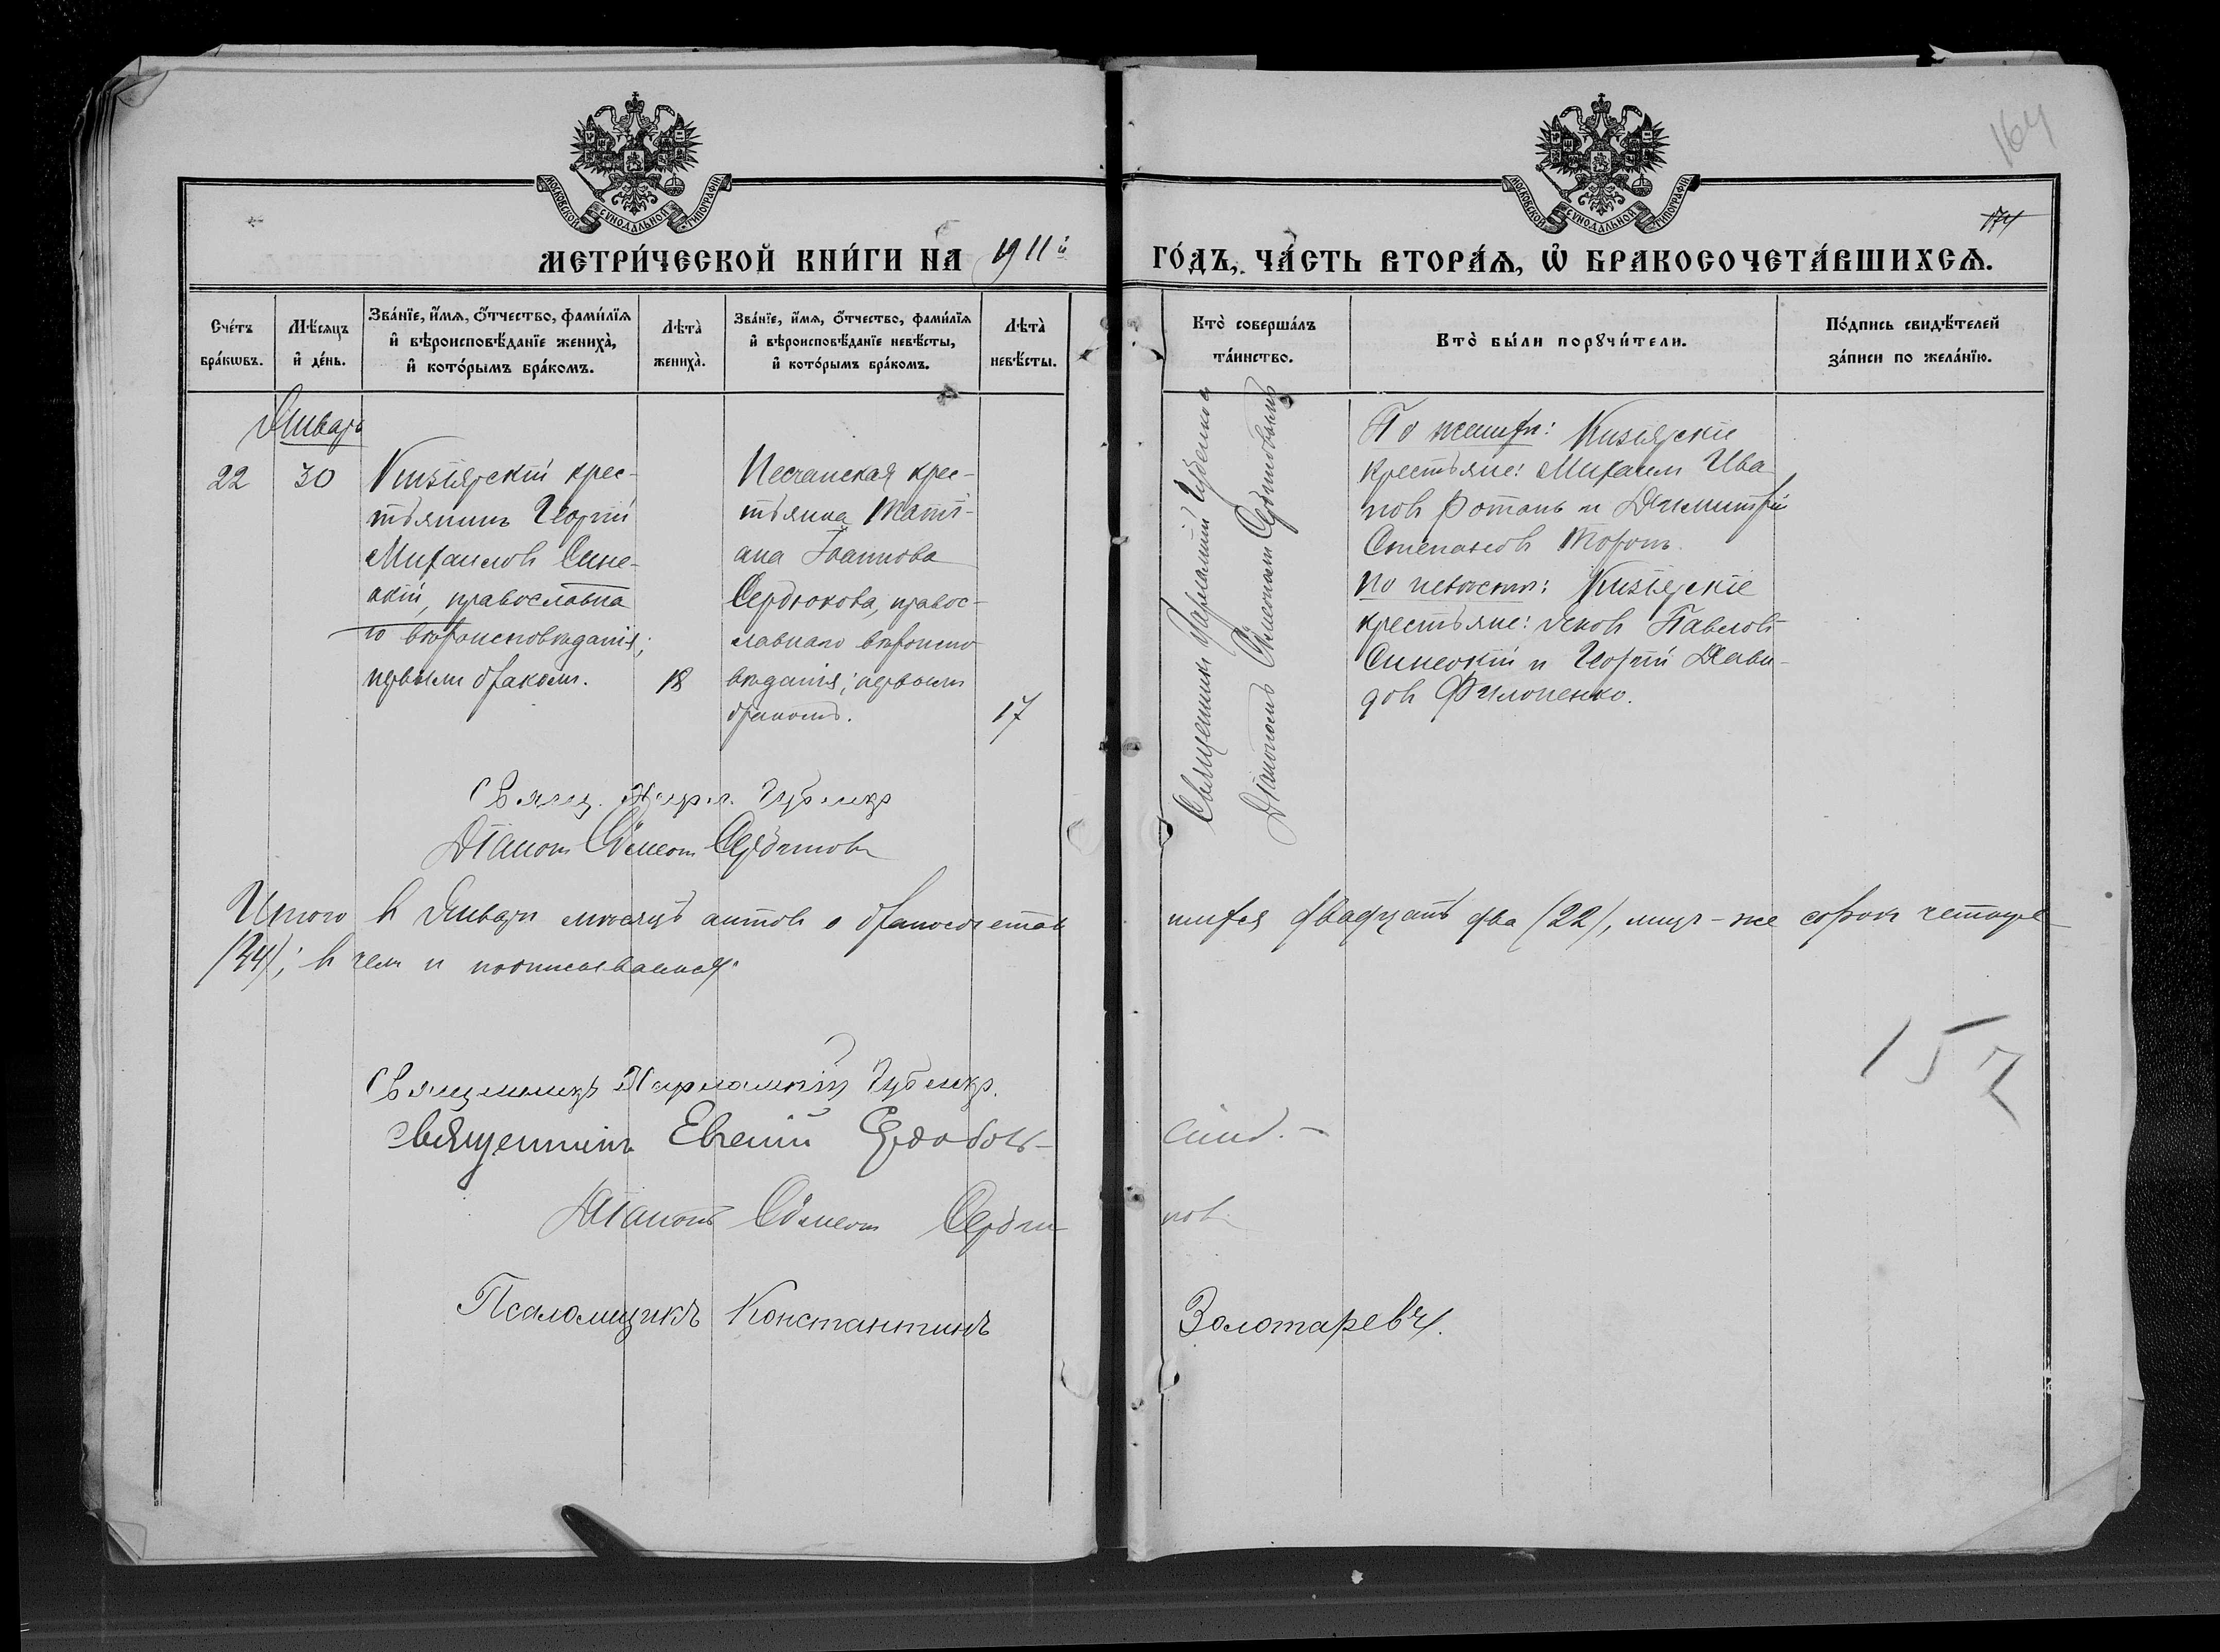 164
174
МОСКОВСКОЙ СѴНОДАЛЬНОЙ ТИПОГРАФІИ
МОСКОВСКОЙ СѴНОДАЛЬНОЙ ТИПОГРАФІИ
МЕТРИ́ЧЕСКОЙ КНИ́ГИ НА 1911й ГО́ДЪ, ЧА́СТЬ ВТОРА́Ѧ, Ѡ҆ БРАКОСОЧЕТА́ВШИХСѦ.
Сче́тъ бра́кѡвъ.
Мѣ́сяцъ и҆ де́нь.
Зва́нїе, и҆́мѧ, о҆́тчество, фами́лїѧ и҆ вѣроисповѣ́данїе жениха̀, и҆ кото́рымъ бра́комъ.
Лѣта̀ жениха̀.
Зва́нїе, и҆́мѧ, о҆́тчество, фами́лїѧ и҆ вѣроисповѣ́данїе невѣ́сты, и҆ кото́рымъ бра́комъ.
Лѣта̀ невѣ́сты.
Кто̀ соверша́лъ та́инство.
Кто̀ бы́ли порꙋчи́тели.
По́дпись свидѣ́телей за́писи по жела́нїю.
Январь
22
30
Кизіярскій крес-
тьянинъ Георгій
Михаиловъ Сине-
окій, православна
го вѣроисповѣданія;
первымъ бракомъ.
18
Песчанская крес-
тьянка Тати-
ана Іоаннова
Сердюкова, правос-
лавнаго вѣроиспо
вѣданія; первымъ
бракомъ.
17
Священникъ Харлампій Губенко
Діаконъ Сѵмеонъ Сербиновъ
По женихѣ: Кизіярскіе
крестьяне: Михаилъ Ива
новъ Ротань и Димитрій
Степановъ Торонъ.
По невѣстѣ: Кизіярскіе
крестьяне: Яковъ Павловъ
Синеокій и Георгій Дави-
довъ Филоненко.
Свящ. Харл. Губенко
Діаконъ Сѵмеонъ Сербиновъ
Итого въ Январѣ мѣсяцѣ актовъ о бракосочетав
шихся двадцать два (22), лицъ-же сорокъ четыре
(44); въ чемъ и подписываемся:
157
Священникъ Харлампій Губенко.
Священникъ Евгеній Сердобольскій.
Діаконъ Сѵмеонъ Сербиновъ
Псаломщикъ Константинъ Золотаревъ.